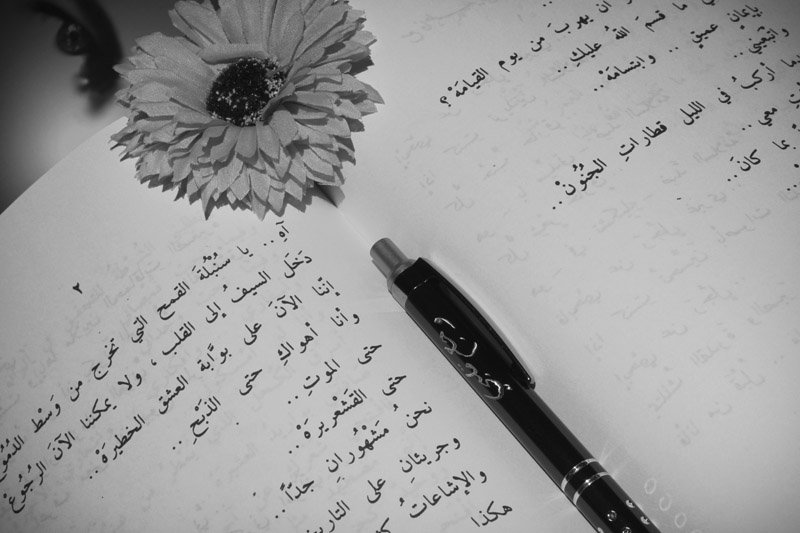 أن يهربَ من يوم القيامَهْ؟
ما قسَمَ اللهُ عليكِ..
عميقٍ.. وابتسامَهْ..
أركبُ في الليل قطاراتِ الجنُونْ..
معي..
ما كانَ..
٢
آهِ.. يا سُنْبُلَةَ القمح التي تخرج من وَسْط الدُمُوعْ
دَخَلَ السيفُ إلى القلب، ولا يمكننا الآنَ الرُجُوعْ
إنّنا الآنَ على بوّابة العشق الخطيرهْ..
وأنا أهواكِ حتى الذَبْحِ..
حتى الموتِ..
حتى القَشْعَريرهْ..
نحنُ مَشْهُورانِ جدّاً..
وجريئانِ على التاريخ
والإشاعاتُ
هكذا